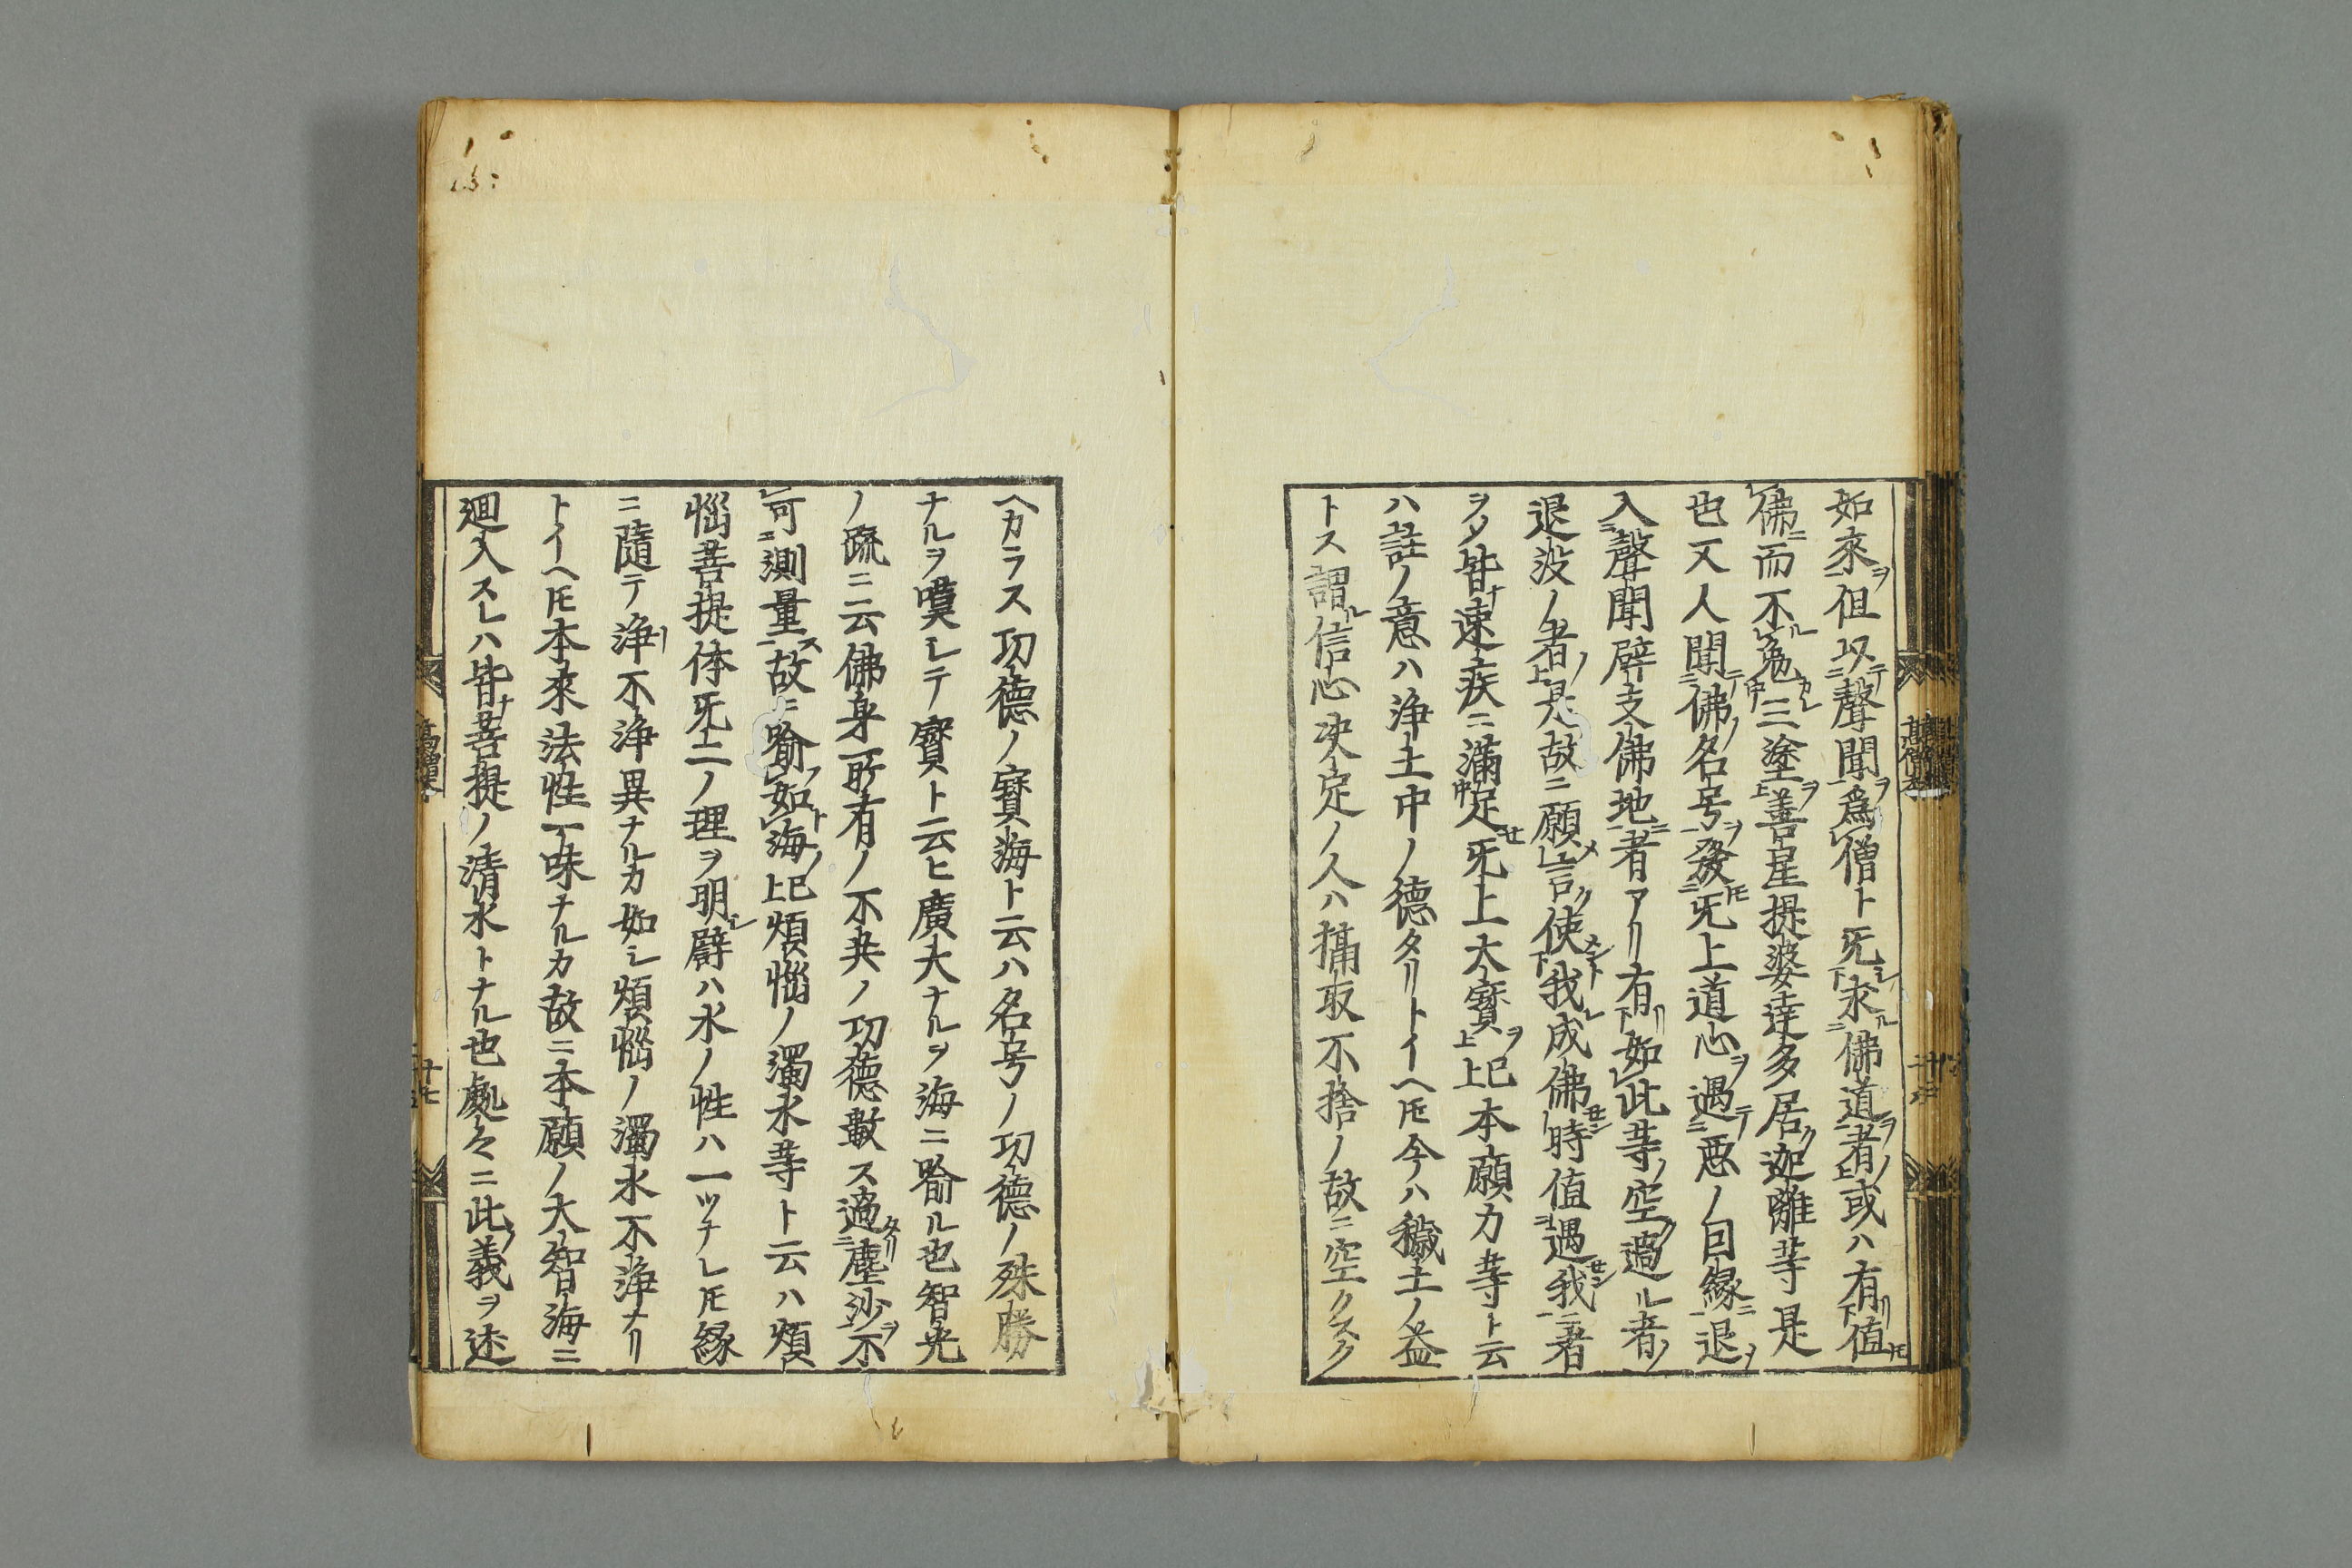 如來ヲ但以テ聲聞ヲ爲僧ト旡シ求ル佛道ヲ者ノ或ハ有リ値𪜈
佛ニ而不ル免カレ三塗ヲ善星提婆達多居迦離等是
也又人聞テ佛ノ名号ヲ發𪜈旡上道心ヲ遇テ悪ノ因縁ニ退ヲ
入聲聞辟支佛地ニ者アリ有リ如此等ノ空ク過ル者ノ
退没ノ者ノ是故ニ願メ言ク使メント我レ成佛セン時値遇セン我ニ者
ヲメ皆ナ速疾ニ滿足セ旡上大寳ヲ已上本願力等ト云
ハ註ノ意ハ浄土中ノ德タリトイヘ𪜈今ハ穢土ノ益
トス謂ル信心决定ノ人ハ攝取不捨ノ故ニ空クスク
ヘカラス功德ノ寳海ト云ハ名号ノ功德ノ殊勝
ナルヲ嘆シテ寳ト云ヒ廣大ナルヲ海ニ喻ル也智光
ノ疏ニ云佛身所有ノ不共ノ功德數ス過タリ塵沙ヲ不
可測量ス故ニ喻フ如ト海ノ已上煩惱ノ濁水等ト云ハ煩
惱菩提体旡二ノ理ヲ明シ譬ハ水ノ性ハ一ツナレ𪜈縁
ニ隨テ浄リ不浄異ナルカ如シ煩惱ノ濁水不浄ナリ
トイヘ𪜈本來法性一味ナルカ故ニ本願ノ大智海ニ
廻入スレハ皆ナ菩提ノ清水トナル也處々ニ此ノ義ヲ述
高僧
十七